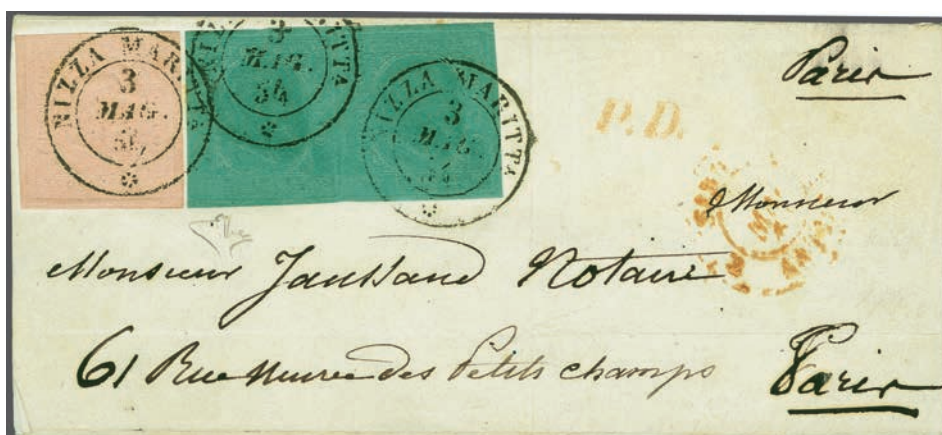 NIZZA MARITTA
3
MAG.
54
NIZZA MARITTA
3
MAG.
54
NIZZA MARITTA
3
MAG.
54
P.D.
Paris
Monsieur
Monsieur Jaussaud Notaire
61 Rue Neuve des Petits champs Paris